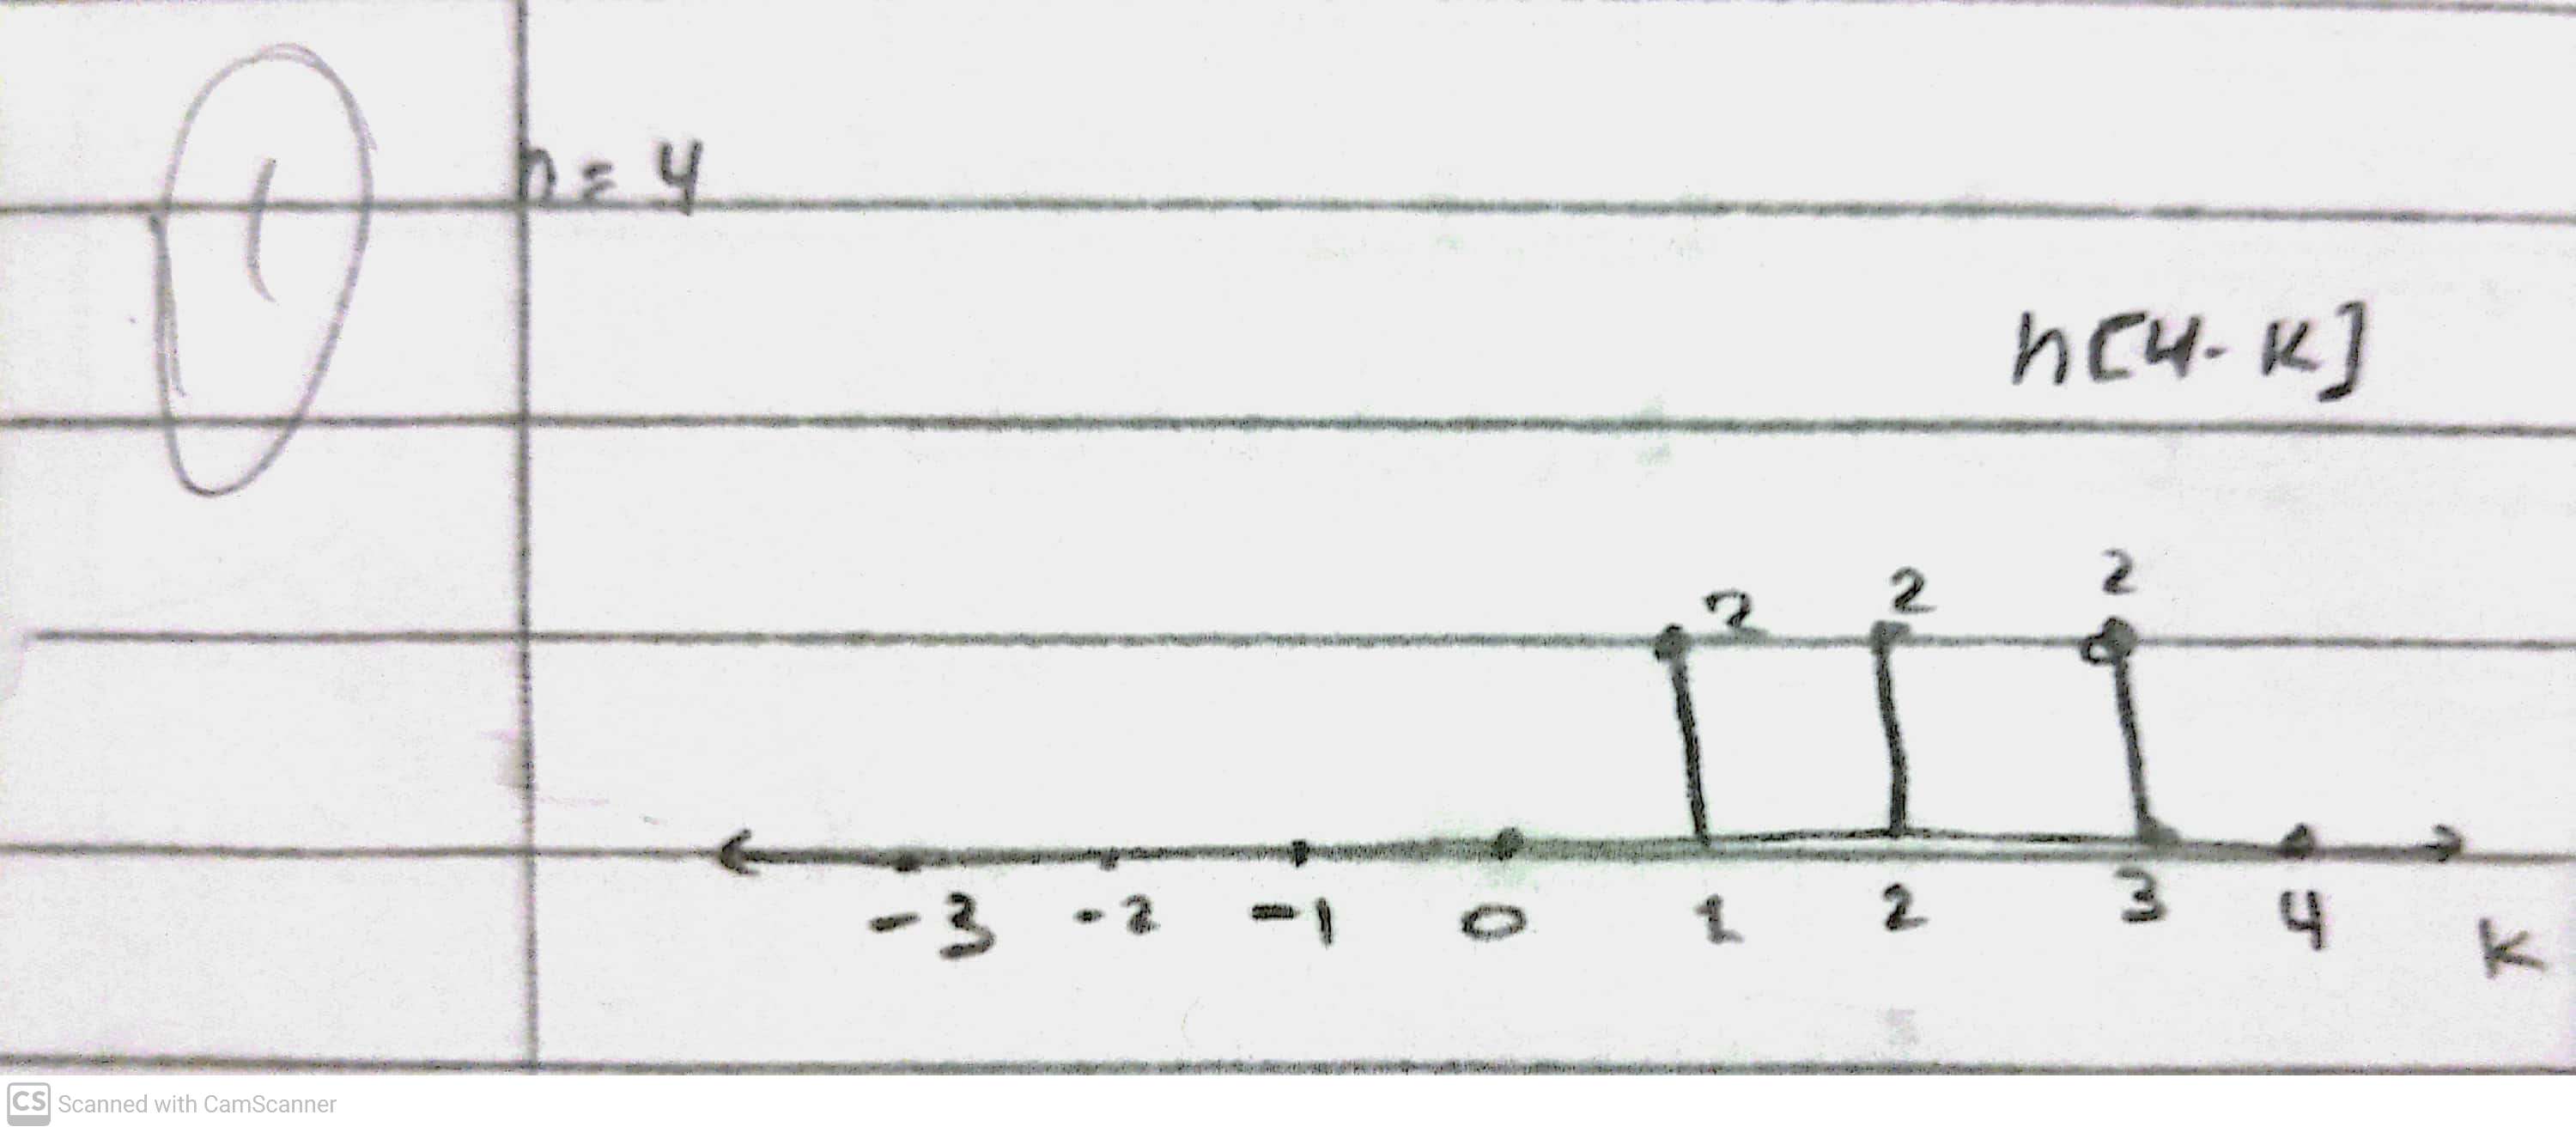 n = 4
h[4-k]
2 2 2
-3 -2 -1 0 1 2 3 4 k
CS Scanned with CamScanner